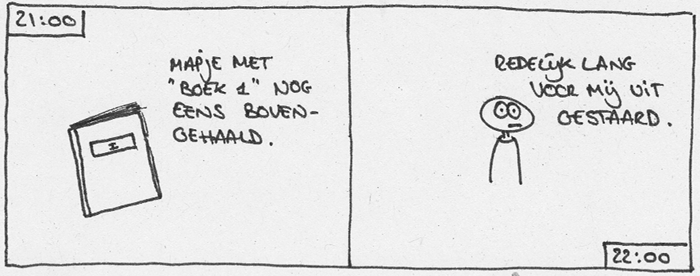 21:00
MAPJE MET
"BOEK 1" NOG
EENS BOVEN-
GEHAALD.
I
REDELIJK LANG
VOOR MIJ UIT
GESTAARD.
22:00